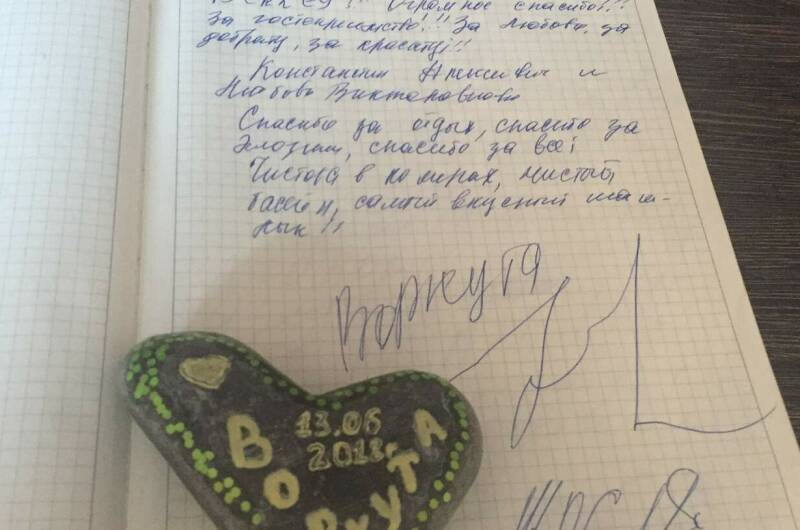 ВСЕГО!! Огромное спасибо!!!
За гостеприимство!!! За любовь, за
доброту, за красату!!
Константин и
Любовь Викторовна
Спасибо за отдых, спасибо за
спасибо за всё!
Чистота в комерах, чистый
басейн, самый вкусный шаш-
лык!!
Воркута
13.06
2018г.
ВОРКУТА